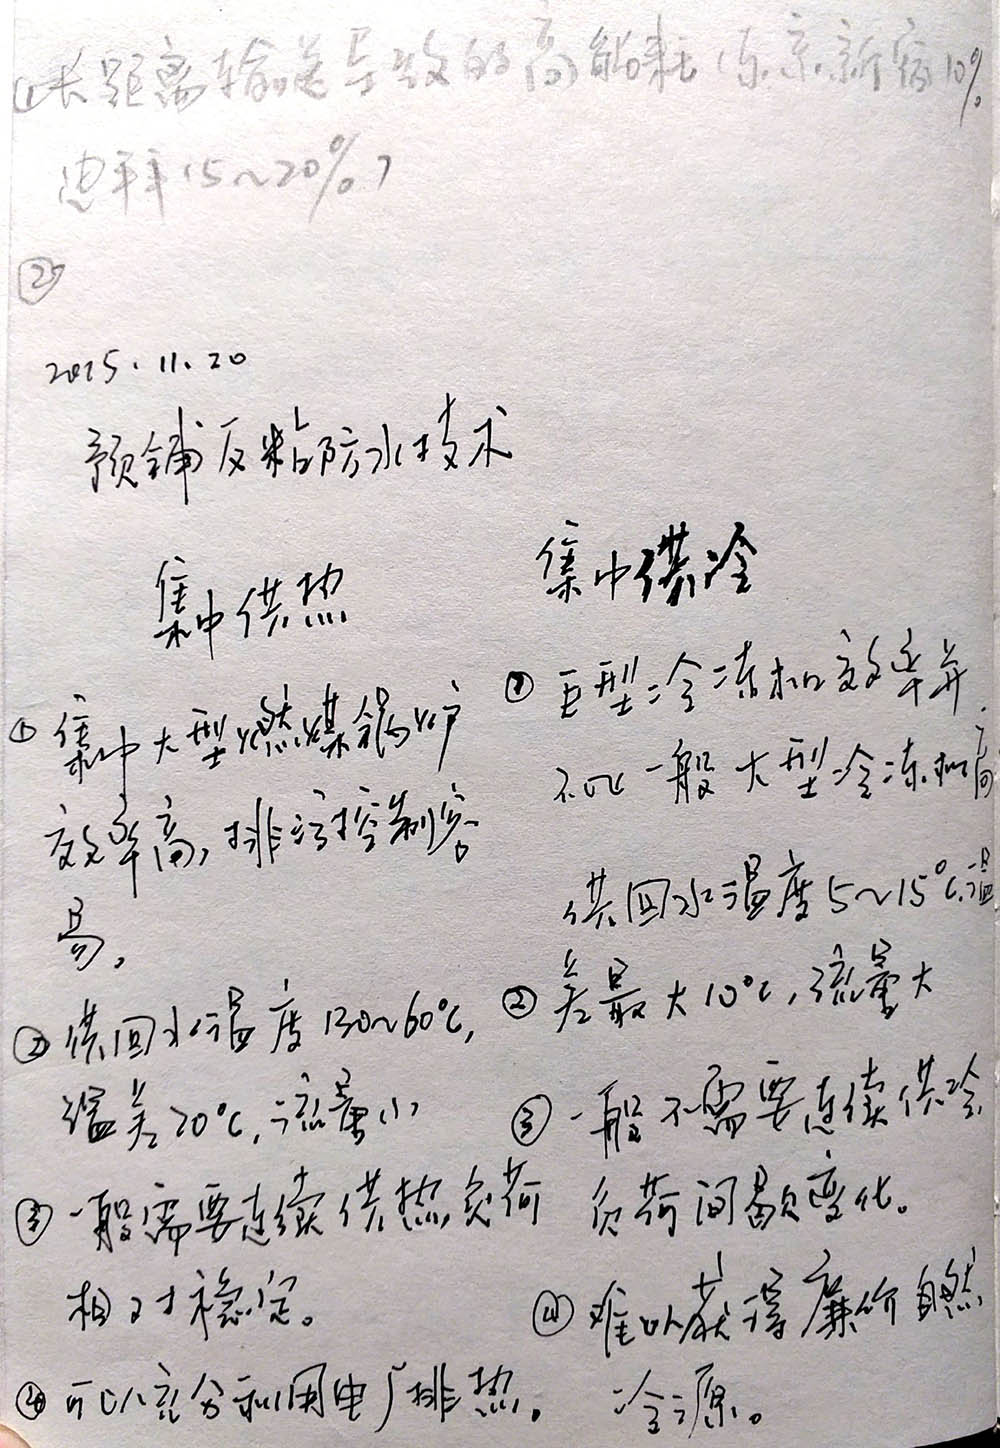 ①长距离输送导致的高能耗(东京新宿10%
②
2015.11.20
预铺反粘防水技术
集中供热
①集中大型燃煤锅炉
效率高,排污控制容
易。
②供回水温度130~60℃,
温差70℃,流量小
③一般需要连续供热,负荷
相对稳定。
④可以充分利用电厂排热。
集中供冷
①巨型冷冻机效率并
不比一般大型冷冻机高
供回水温度5~15℃,温
②差最大10℃,流量大
③一般不需要连续供冷
负荷间歇变化。
④难以获得廉价自然
冷源。